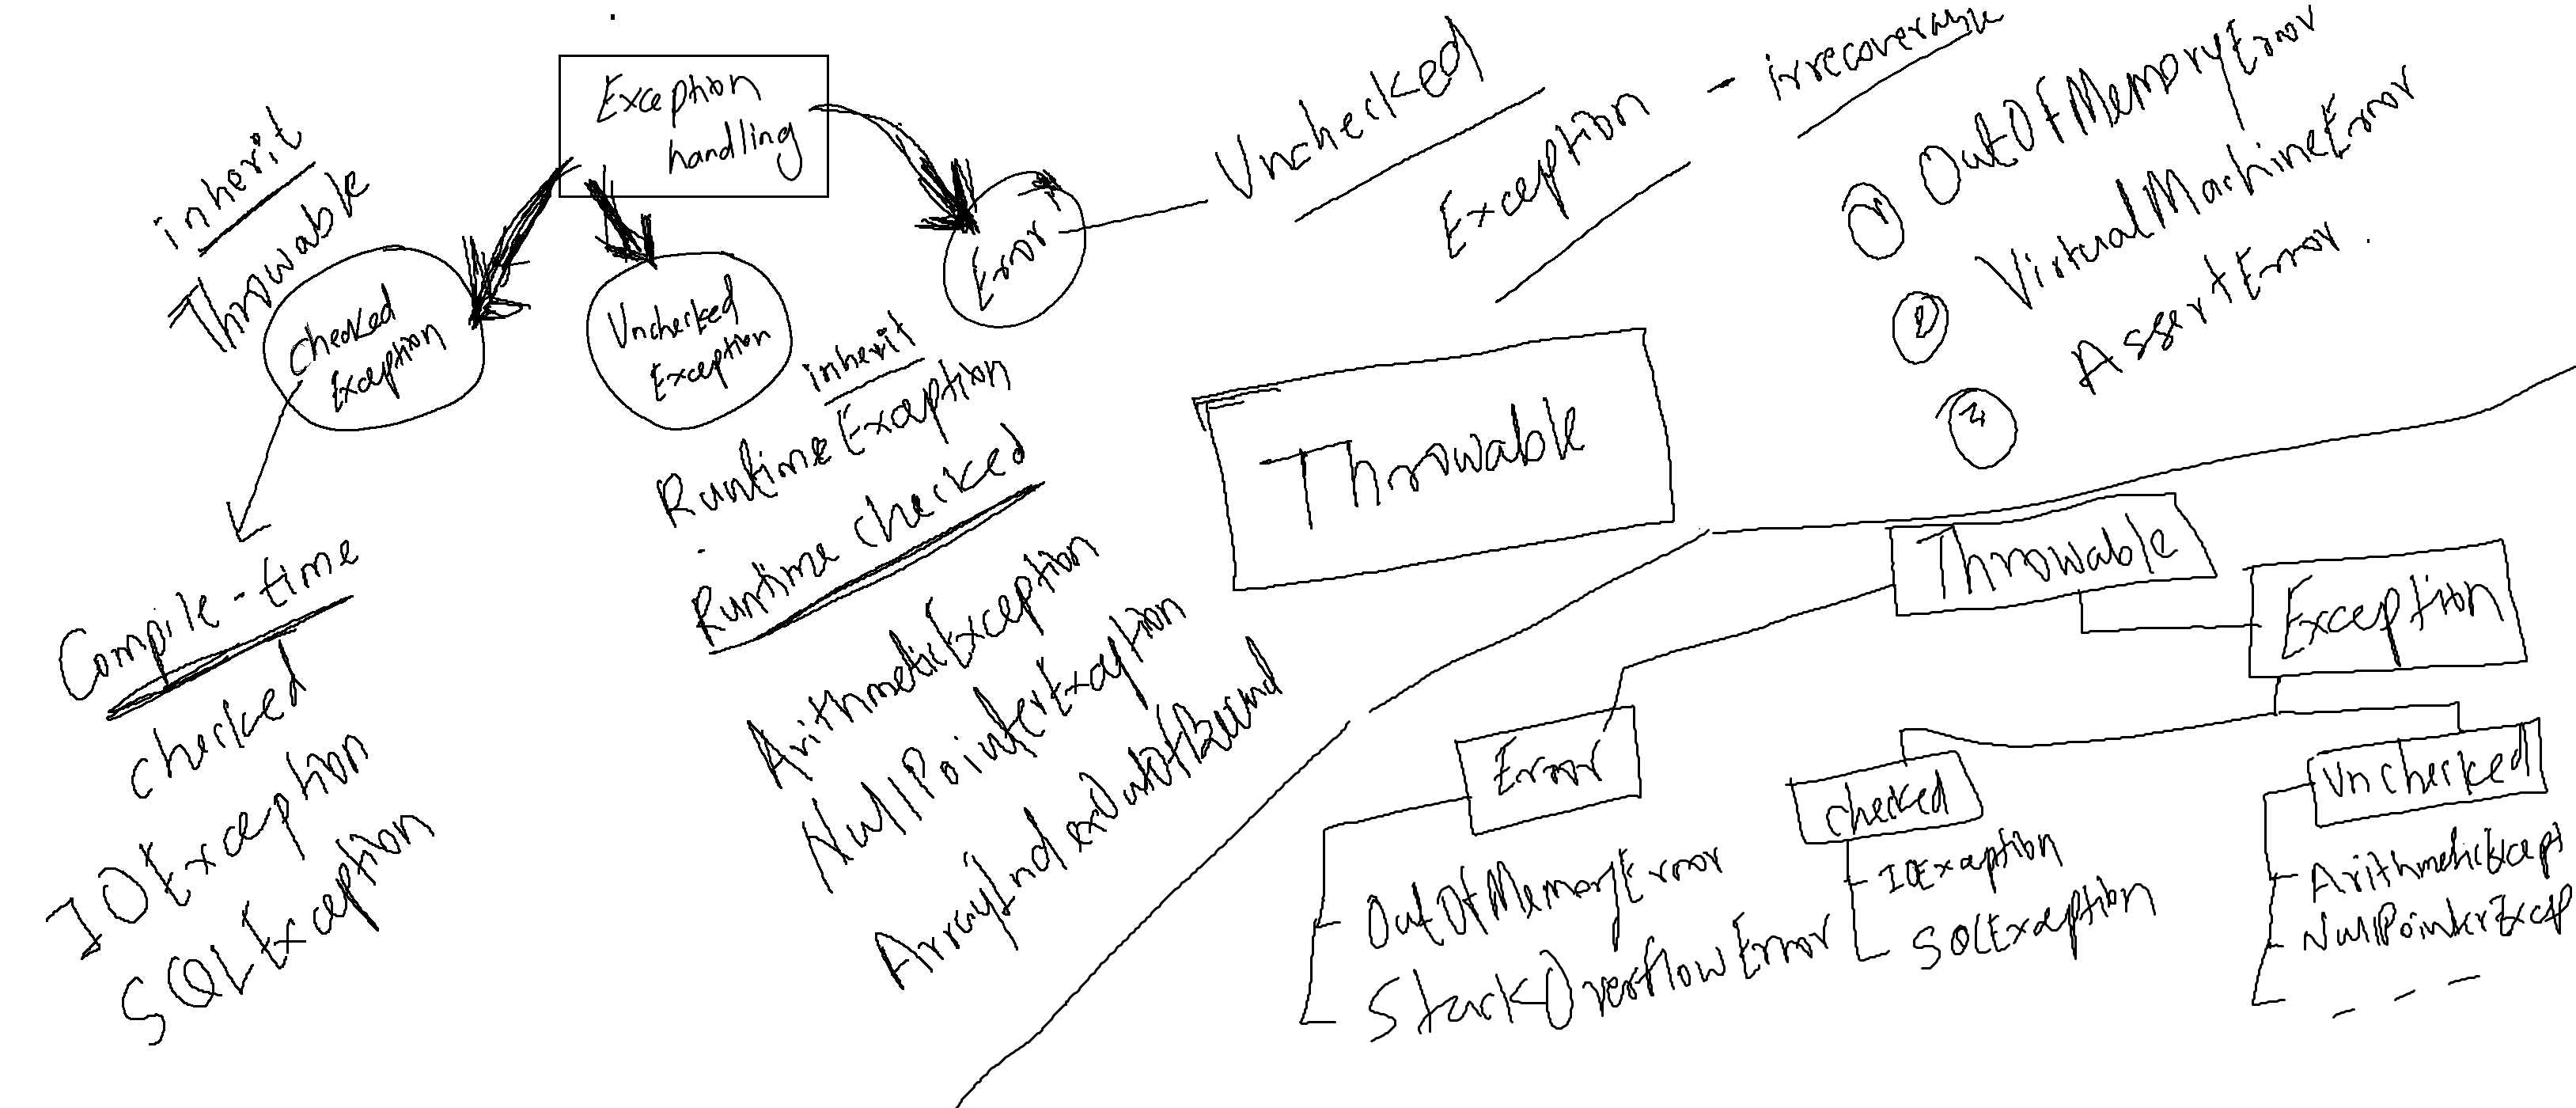 Exception
handling
inherit
Throwable
checked
Exception
Compile-time
checked
IOException
SQLException
Unchecked
Exception
inherit
RuntimeException
Runtime checked
ArithmeticException
NullPointerException
ArrayIndexOutOfBound
Error
Unchecked
Exception - irrecoverable
1 OutOfMemoryError
2 VirtualMachineError
3 AssertError.
Throwable
Throwable
Exception
Error
OutOfMemoryError
StackOverflowError
checked
IOException
SQLException
Unchecked
ArithmeticExcept
NullPointerExcep
- - -